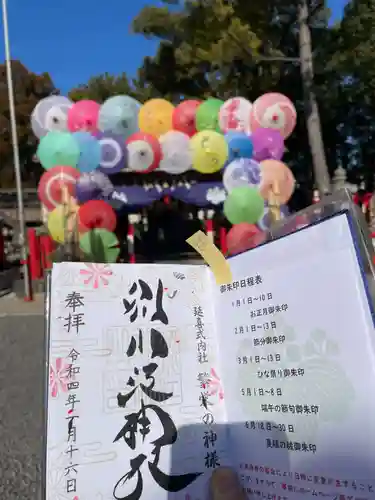 奉拝
令和四年一月十六日
別小江神社
延喜式内社
安産の神様
御朱印日程表
1月1日〜10日
お正月御朱印
2月1日〜13日
節分御朱印
3月1日〜13日
ひな祭り御朱印
5月1日〜8日
端午の節句御朱印
6月18日〜30日
夏越の祓御朱印